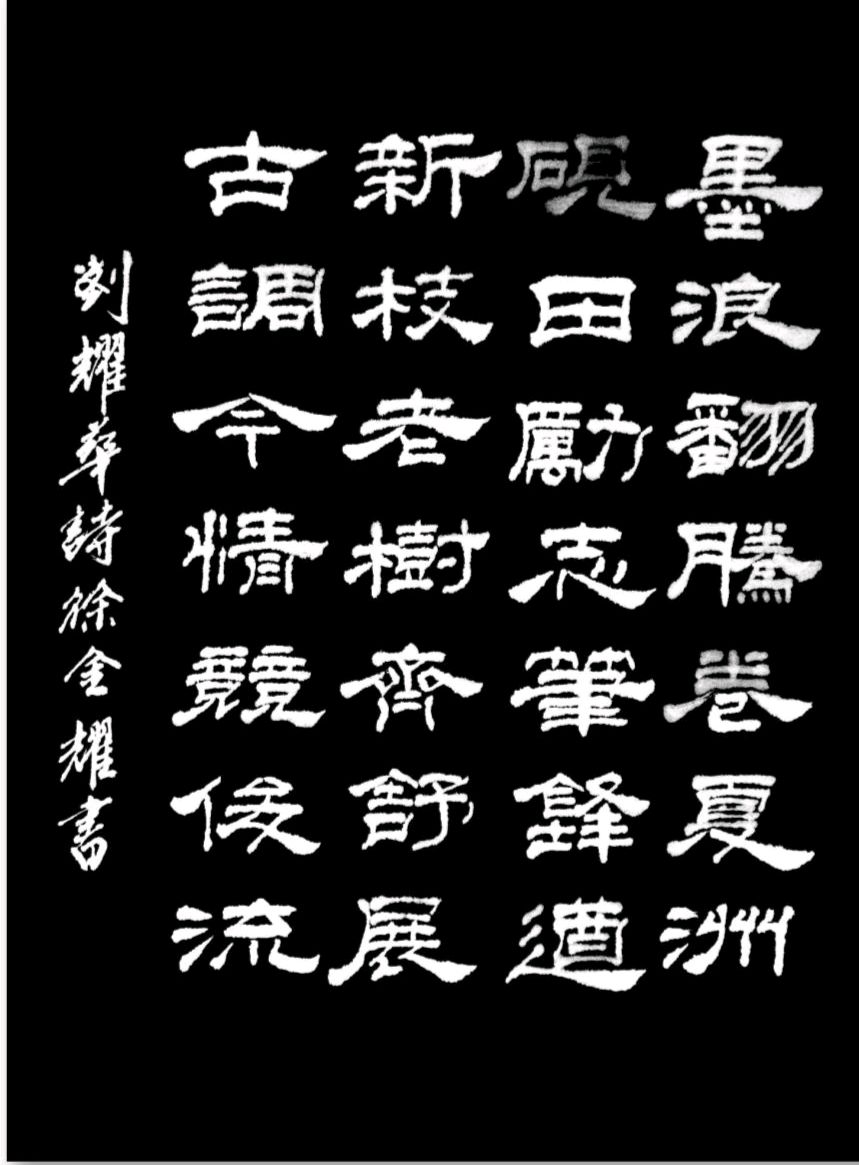 墨浪翻騰卷夏洲
硯田勵志筆鋒遒
新枝老樹齊舒展
古調今情競俊流
劉耀華詩徐金耀書